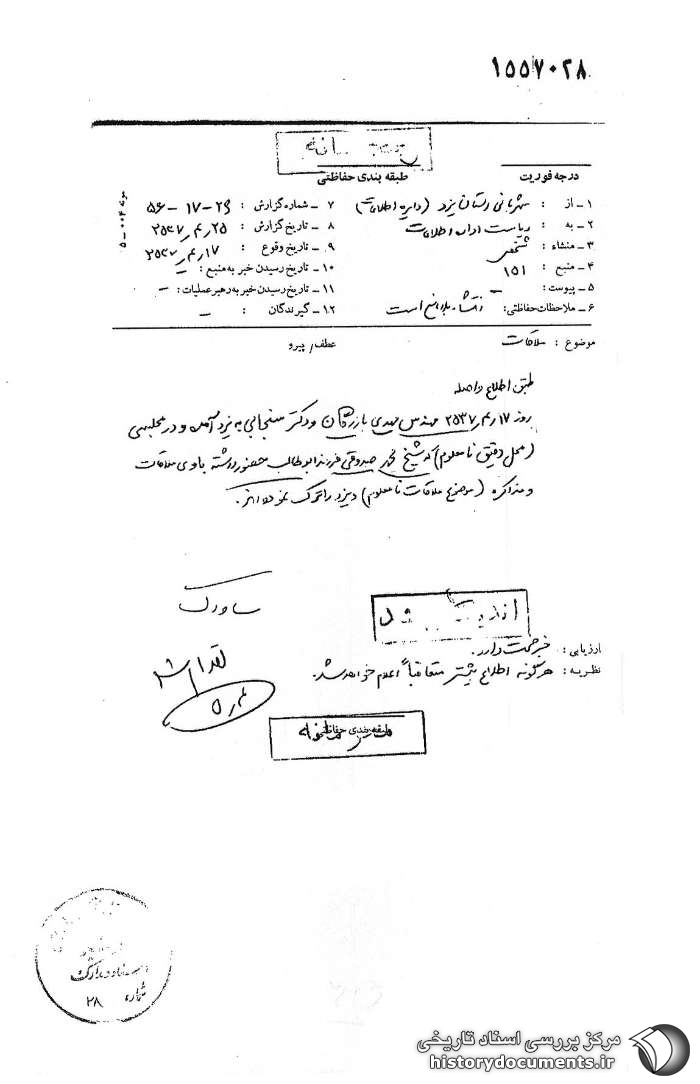 ۱۵۵۷۰۲۸
درجه فوریت
طبقه بندی حفاظتی
۱ـ از : شهربانی استان یزد (دایره اطلاعات)
۲ـ به : ریاست اداره اطلاعات
۳ـ منشاء : شخصی
۴ـ منبع : ۱۵۱
۵ـ پیوست: ـ
۶ـ ملاحظات حفاظتی: انتشار بلامانع است
۷ ـ شماره گزارش : ۲۹-۱۷-۵۶
۸ ـ تاریخ گزارش : ۲۵ر۴ر۲۵۳۷
۹ ـ تاریخ وقوع : ۱۷ر۴ر۲۵۳۷
۱۰ ـ تاریخ رسیدن خبر به منبع : ـ
۱۱ ـ تاریخ رسیدن خبر به رهبر عملیات : ـ
۱۲ ـ گیرندگان : ـ
موضوع : ملاقات
عطف/پیرو
طبق اطلاع واصله
روز ۱۷ر۴ر۲۵۳۷ مهندس مهدی بازرگان و دکتر سنجابی به یزد آمده و در مجلسی
(محل دقیق نامعلوم) که شیخ محمد صدوقی فرزند ابوطالب حضور داشته با وی ملاقات
و مذاکره (موضوع ملاقات نامعلوم) و یزد را ترک نموده‌اند.
ساواک
شد
ارزیابی : خبر صحت دارد.
نظریه : هرگونه اطلاع بیشتر متعاقباً اعلام خواهد شد.
طبقه بندی حفاظتی
اسناد و مدارک
شماره ۲۸
مرکز بررسی اسناد تاریخی
historydocuments.ir